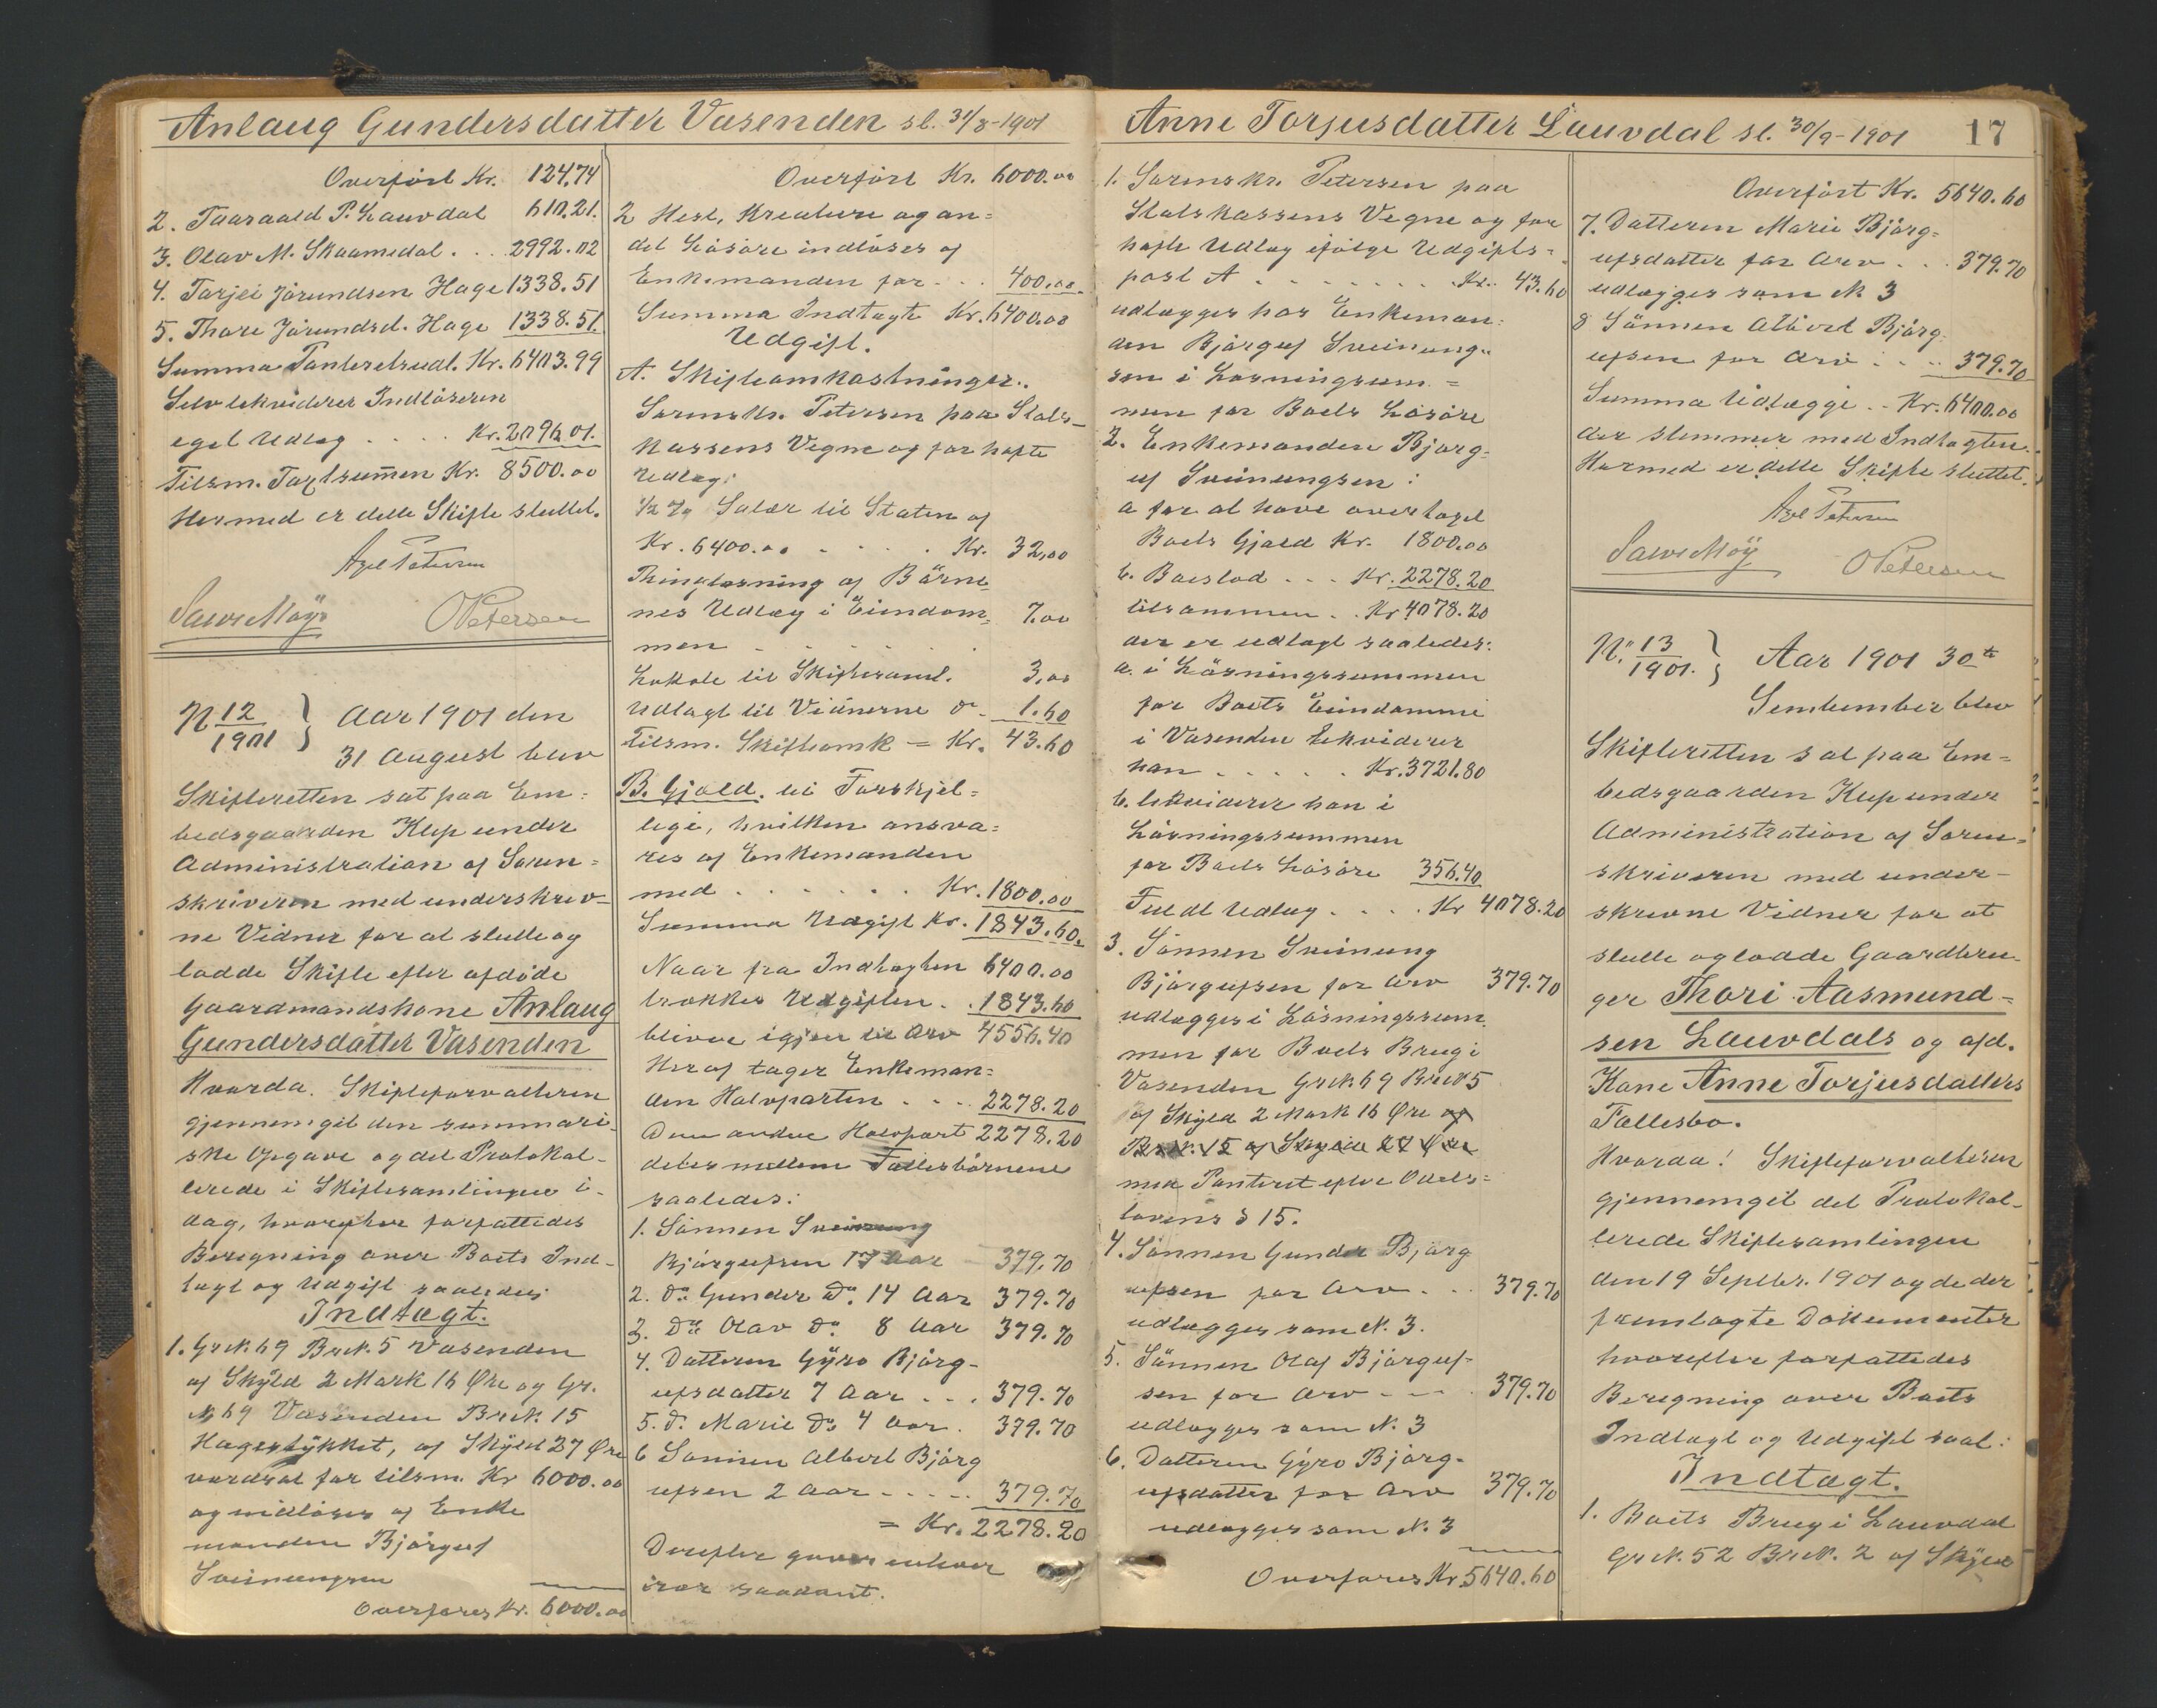 Anlaug Gundersdatter Vasenden sl. 31/8-1901
Overført Kr. 124,74
2. Taaraald P. Lauvdal 610.21.
3. Olav M. Skaamedal . . . 2992.02
4. Tarjei Jørundsen Hage 1338.51
5. Thore Jørundsd. Hage 1338.51.
Summa Panteretsudl. Kr. 6403.99
Selv lekviderer Indløseren
eget Udlæg . . . . Kr. 2096.01.
Tilsm. Taxtsummen Kr. 8500.00
Hermed er dette Skifte sluttet.
Axel Petersen
O Petersen
N. 12/1901 } Aar 1901 den
31 August blev
Skifteretten sat paa Em=
bedsgaarden Klep under
Administration af Soren=
skriveren med underskrev=
ne Vidner for at slutte og
lodde Skifte efter afdøde
Gaardmandskone Anlaug
Gundersdatter Vasenden
Hvorda. Skifteforvalteren
gjennemgik den summari=
ske Opgave og det Protokol=
lerede i Skiftesamlingen i=
dag, hvorefter forfattedes
Beregning over Boets Ind=
tægt og Udgift saaledes
Indtægt.
1. Gr.N. 69 Br.N. 5 Vasenden
af Skyld 2 Mark 16 Øre og Gr.
N. 69 Vasenden Br.N. 15
Hagestykket, af Skyld 27 Øre
verdsat for tilsm. Kr 6000.00
og indløses af Enke
manden Bjørguf
Sveinungsen
Overføres Kr. 6000.00
Overført Kr. 6000.00
2 Hest, Kreature og an=
det Løsøre indløses af
Enkemanden for . . . 400.00.
Summa Indtægt Kr. 6400.00
Udgift.
A. Skifteomkostninger.
Sorenskr. Petersen paa Stats=
kassens Vegne og for hafte
Udlæg:
1/2 % Salær til Staten af
Kr. 6400.00 . . . . . Kr. 32,00
Thinglæsning af Børne=
nes Udlæg i Eiendom= 7.00
men . . . . .
Lokale til Skiftesaml. 3,00
Udlagt til Vidnerne do 1.60
Tilsm. Skifteomk = Kr. 43.60
B. Gjæld. til Forskjel=
lige, hvilken ansva=
res af Enkemanden
med . . . . . . Kr. 1800.00
Summa Udgift Kr. 1843.60.
Naar fra Indtægten 6400.00
trækkes Udgiften . . 1843.60
bliver igjen til Arv 4556.40
Heraf tager Enkeman=
den Halvparten . . . 2278.20
Den anden Halvpart 2278.20
deles mellem Fællesbørnene
saaledes:
1. Sønnen Sveinung
Bjørgufsen 17 Aar 379.70
2. do Gunder do 14 Aar 379.70
3. do Olav do 8 Aar 379.70
4. Datteren Gyro Bjørg=
ufsdatter 7 Aar . . . 379.70
5. do Marie do 4 Aar . 379.70
6 Sønnen Albert Bjørg
ufsen 2 Aar . . . . . 379.70
= Kr. 2278.20
Derefter gjøres enhver
især saadant.
Anne Torjusdatter Lauvdal sl. 30/9-1901 17
1. Sorenskr. Petersen paa
Statskassens Vegne og for
hafte Udlæg ifølge Udgifts=
post A . . . . . . . . Kr. 43.60
udlægges hos Enkeman=
den Bjørguf Sveinung=
sen i Løsningssum=
men for Boets Løsøre
2. Enkemanden Bjørg=
uf Sveinungsen:
a for at have overtaget
Boets Gjæld Kr. 1800.00
b. Boeslod . . . Kr. 2278.20
tilsammen . . Kr 4078.20
der er udlagt saaledes:
a. i Løsningssummen
for Boets Eiendomme
i Vasenden lekviderer
han . . . . . Kr. 3721.80
b. lekviderer han i
Løsningssummen
for Boets Løsøre 356.40
Fuldt Udlæg . . . . Kr 4078.20
3. Sønnen Sveinung
Bjørgufsen for Arv 379.70
udlægges i Løsningssum=
men for Boets Brug i
Vasenden Gr.N. 69 Br.N. 5
af Skyld 2 Mark 16 Øre og
Br.N. 15 af Skyld 27 Øre
med Panteret efter Odels=
lovens § 15.
4. Sønnen Gunder Bjørg
ufsen for Arv . . . 379.70
udlægges som N. 3.
5. Sønnen Olaf Bjørguf=
sen for Arv . . . . 379.70
udlægges som N. 3
6. Datteren Gyro Bjørg=
ufsdatter for Arv 379.70
udlægges som N. 3
Overføres Kr. 5640.60
Overført Kr. 5640.60
7. Datteren Marie Bjørg=
ufsdatter for Arv . . . 379.70
udlægges som N. 3
8 Sønnen Albert Bjørg
ufsen for Arv . . . . 379.70
Summa Udlægge . . Kr. 6400.00
der stemmer med Indtægten.
Hermed er dette Skifte sluttet.
Axel Petersen
O Petersen
N. 13/1901. } Aar 1901 30te
Sembember blev
Skifteretten sat paa Em=
bedsgaarden Klep under
Administration af Soren=
skriveren med under=
skrevne Vidner for at
slutte og lodde Gaardbru=
ger Thori Aasmund=
sen Lauvdals og afd.
Kone Anne Torjusdatters
Fællesbo.
Hvorda! Skifteforvalteren
gjennemgik det Protokol=
lerede Skiftesamlingen
den 19 Septbr. 1901 og de der
fremlagte Dokumenter
hvorefter forfattedes
Beregning over Boets
Indtægt og Udgift saal:
Indtægt.
1. Boets Brug i Lauvdal
Gr.N. 52 Br.N. 2 af Skyld